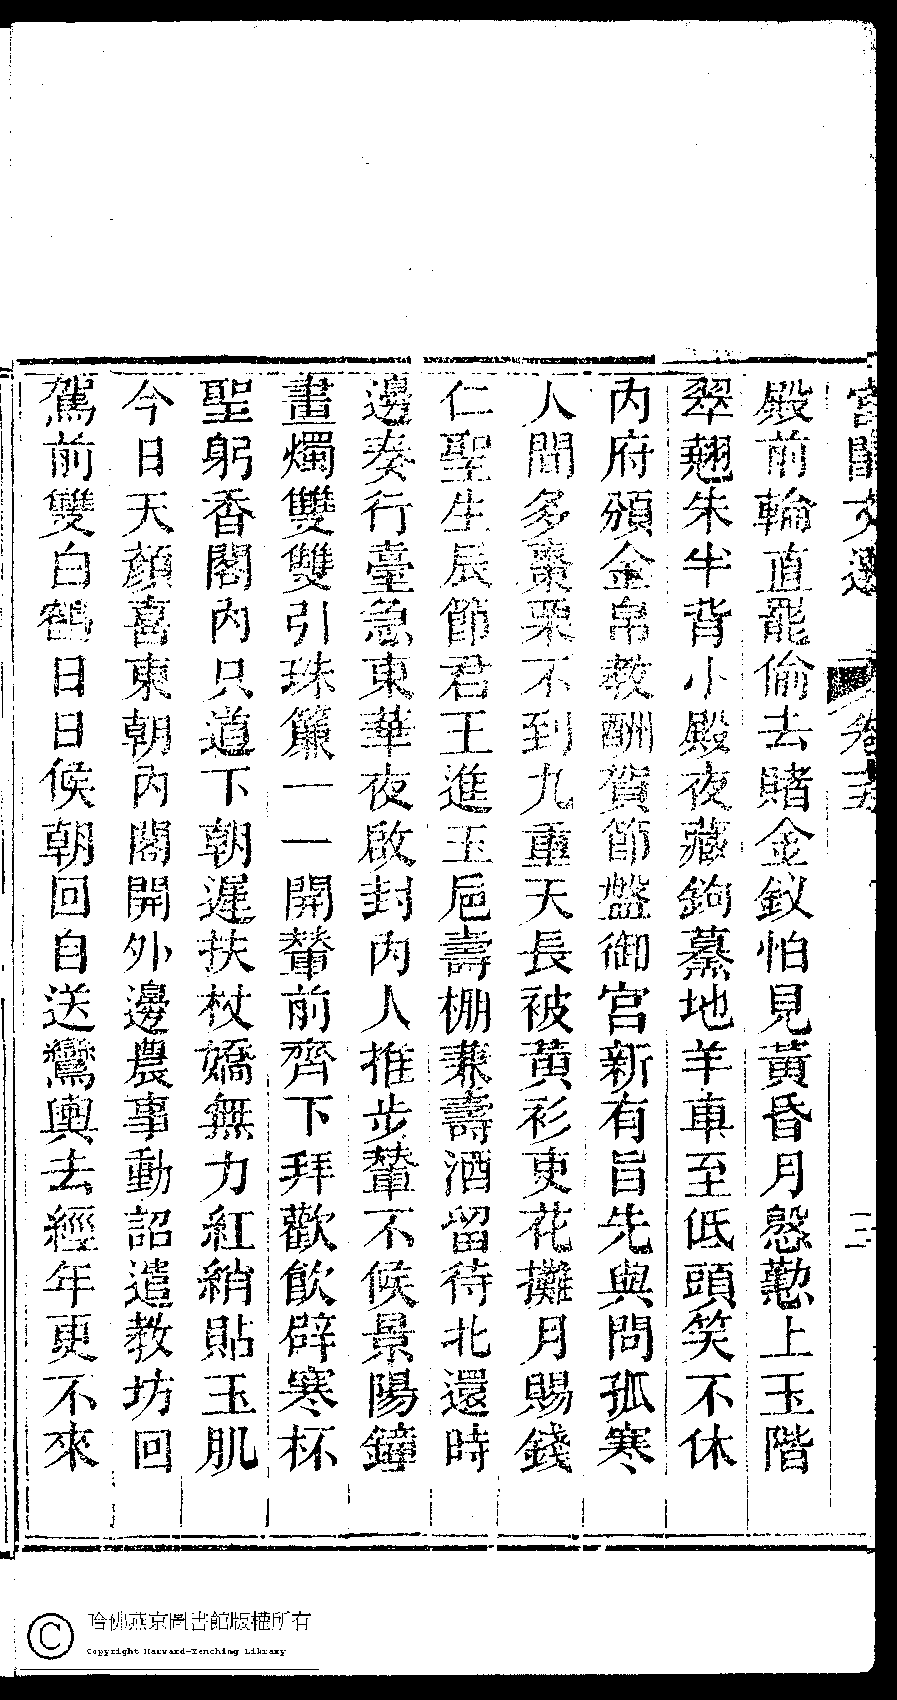 殿前輪直罷偷去賭金釵怕見黃昏月慇懃上玉階
翠翹朱半背小殿夜藏鉤驀地羊車至低頭笑不休
內府頒金帛教酬賀節盤御宮新有旨先與問孤寒
人間多棗栗不到九重天長被黃衫吏花攤月賜錢
仁聖生辰節君王進玉巵壽棚兼壽酒留待北還時
邊奏行臺急東華夜啟封內人推步輦不候景陽鐘
畫燭雙雙引珠簾一一開輦前齊下拜歡飲辟寒杯
聖躬香閣內只道下朝遲扶杖嬌無力紅綃貼玉肌
今日天顏喜東朝內閣開外邊農事動詔遣教坊回
駕前雙白鶴日日候朝回自送鸞輿去經年更不來
哈佛燕京圖書館版權所有
Copyright Harvard-Yenching Library